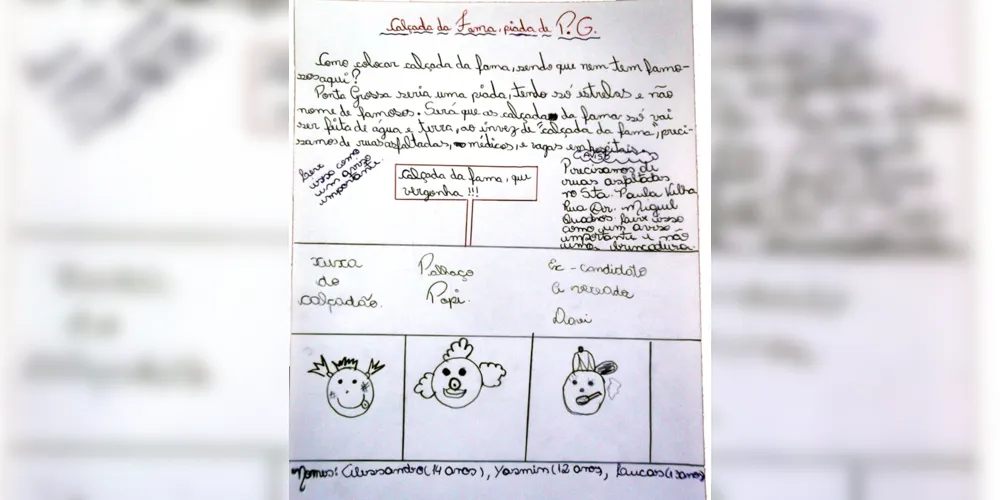 Calçada da Fama, piada de P.G.
Como colocar calçada da fama, sendo que nem tem famo-
sos aqui?
Ponta Grossa seria uma piada, tendo só estrelas e não
nome de famosos. Será que as calçada da fama só vai
ser feita de agua e terra, ao invez de "calçada da fama", preci-
samos de ruas asfaltadas, médicos, e vagas em hospitais.
leve
isso como
um aviso
importante.
Calçada da fama, que
vergonha !!!
AVISO
Pricisamos de
ruas asfaltadas
no Sta. Paula Velha
Rua Dr. Miguel
Quadros leive isso
como um aviso
importante e não
uma brincadeira.
Xuxa
do
calçadão.
Palhaço
Popi.
Ex-candidato
a vereador
Davi
Nomes: Alessandro (14 anos), Yasmin (12 anos,